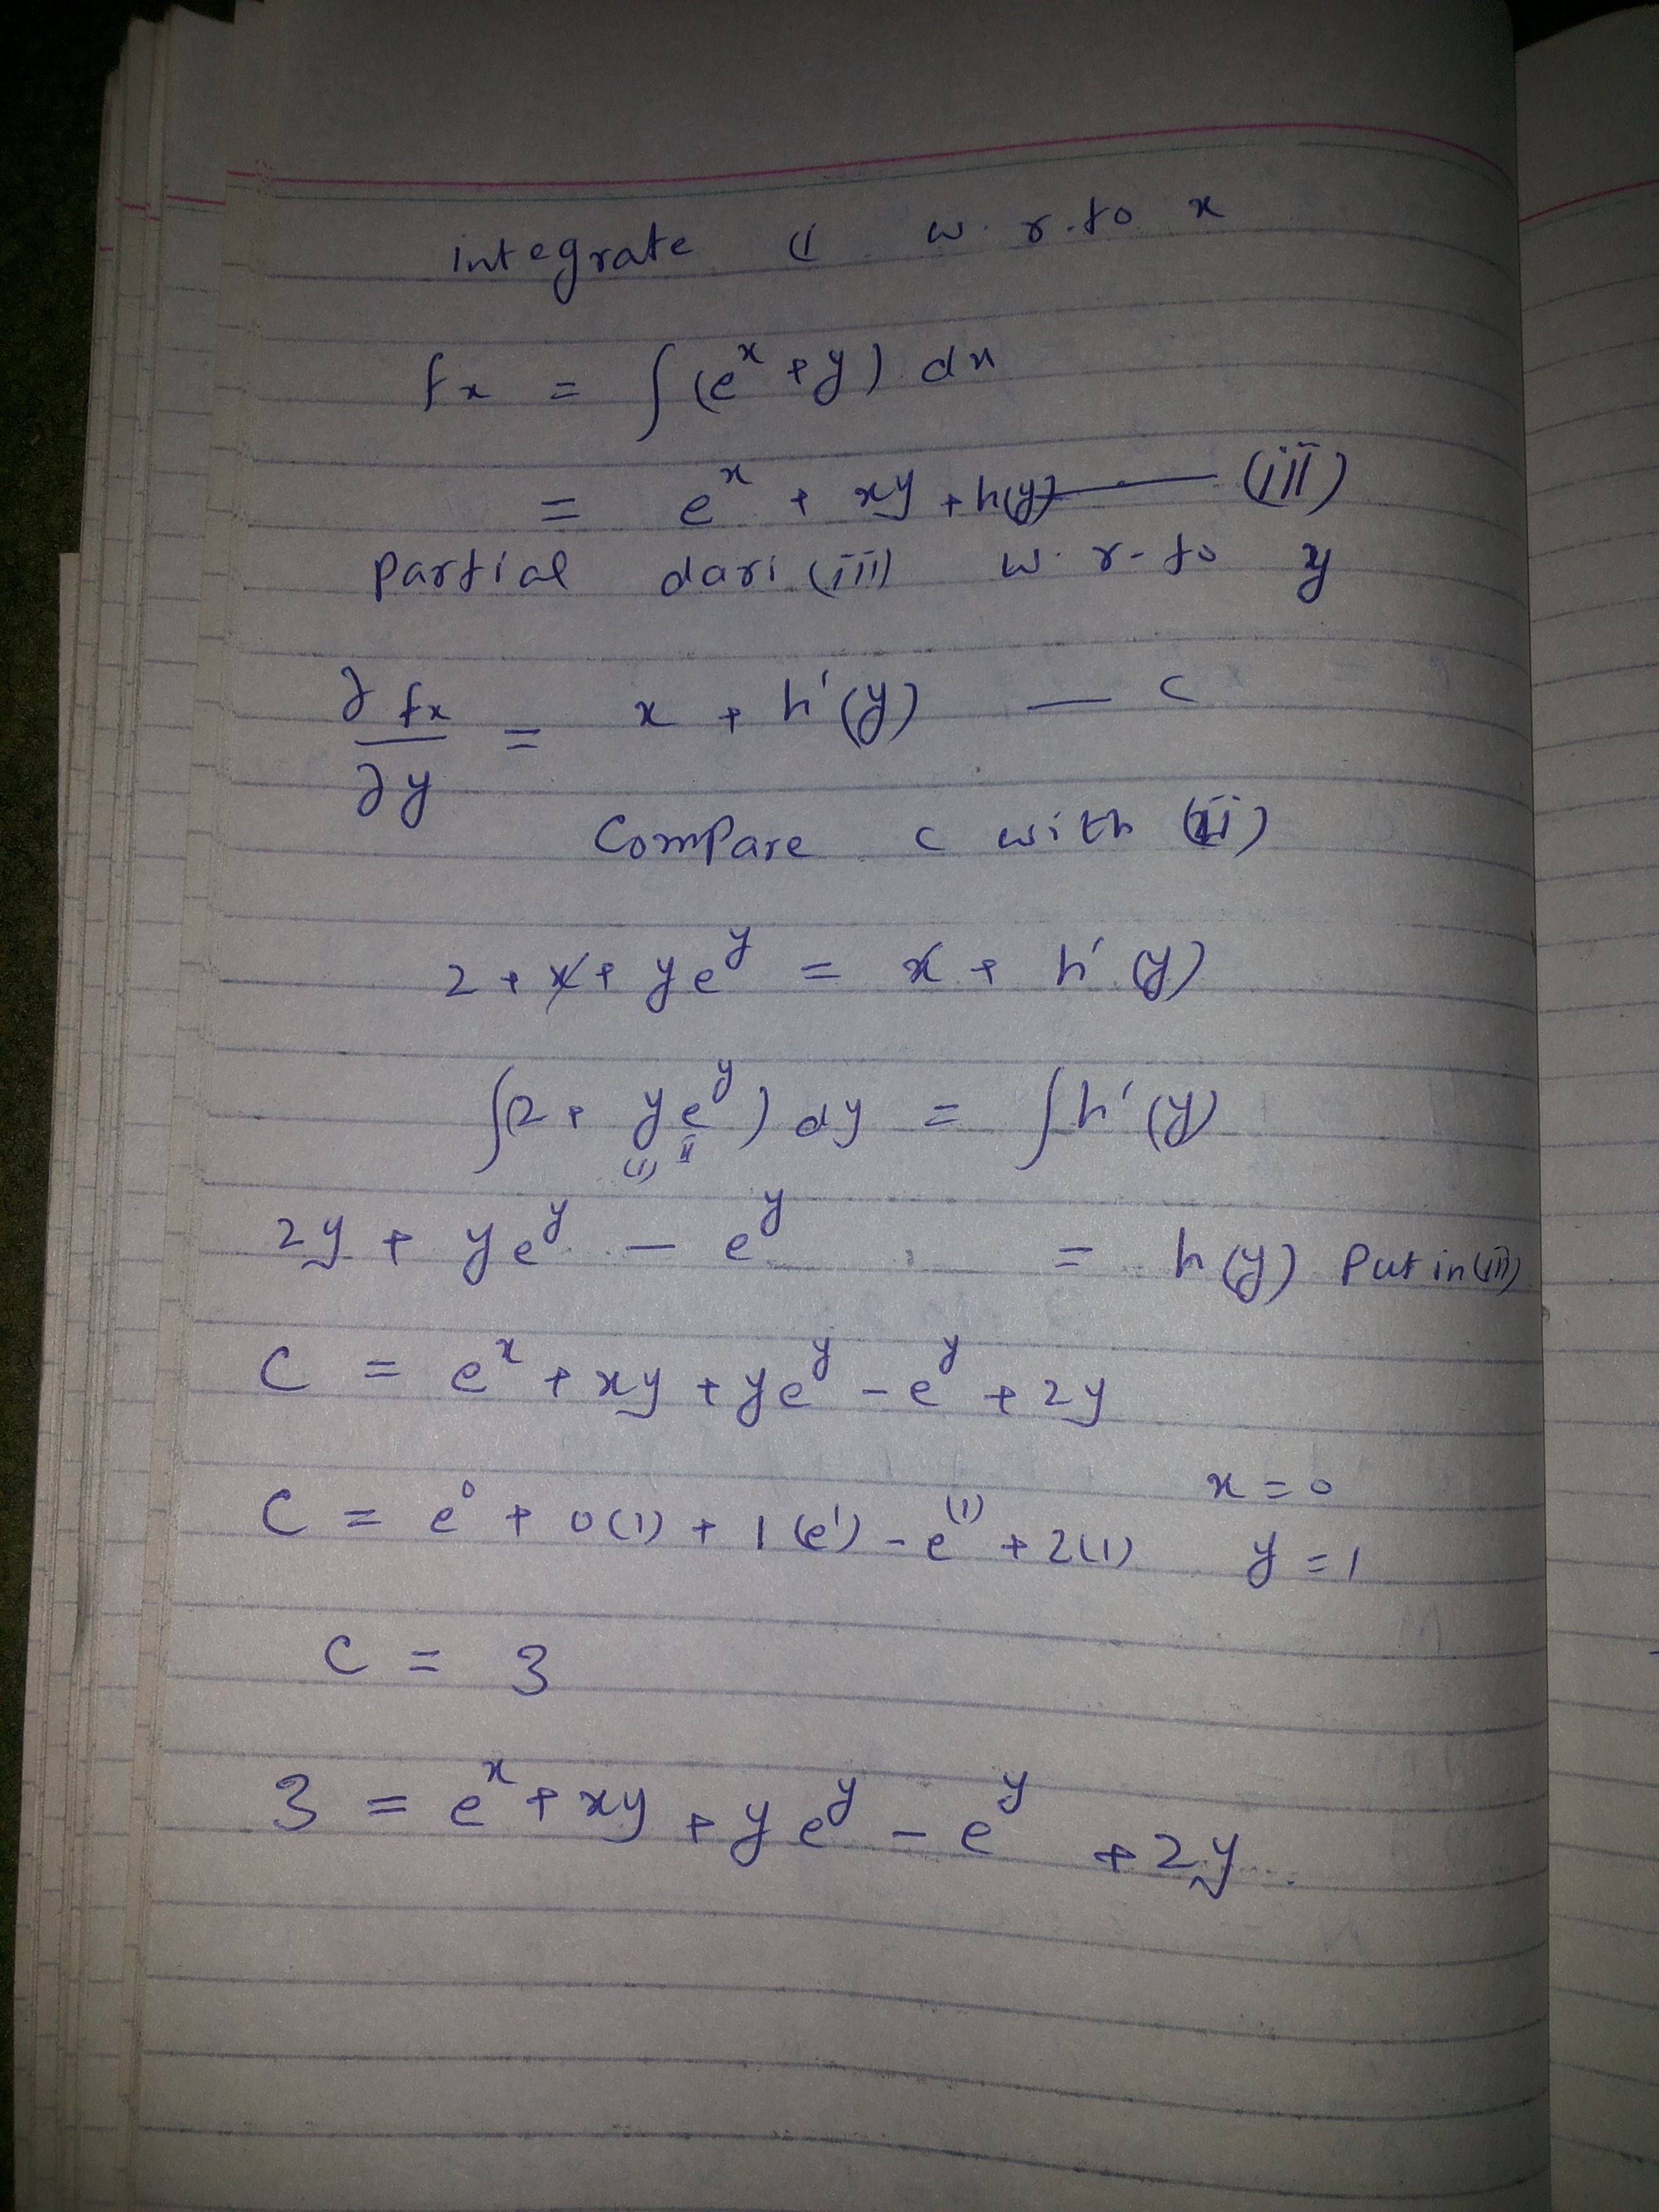 integrate (I w.r.to x
fx = ∫(e^x + y) dx
= e^x + xy + h(y) —— (III)
Partial dari (iii) w.r-to y
∂fx/∂y = x + h'(y) — C
ComPare C with (ii)
2 + x + ye^y = x + h'(y)
∫(2 + ye^y) dy = ∫h'(y)
(I) II
2y + ye^y - e^y = h(y) Put in (iii)
C = e^x + xy + ye^y - e^y + 2y
x = 0
C = e^0 + 0(1) + 1(e^1) - e^(1) + 2(1) y = 1
C = 3
3 = e^x + xy + ye^y - e^y + 2y.